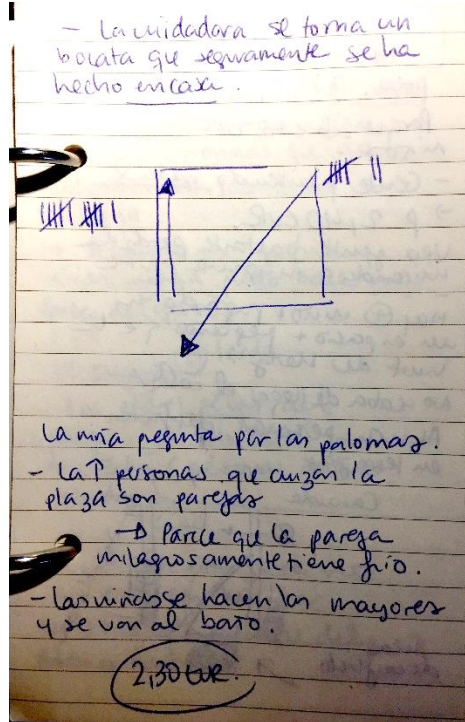 - La cuidadora se toma un
bocata que seguramente se ha
hecho en casa.
La niña pregunta por las palomas.
- La ↑ personas que cruzan la
plaza son parejas
→ Parece que la pareja
milagrosamente tiene frío.
- las niñas se hacen las mayores
y se van al baño.
2,30 EUR.